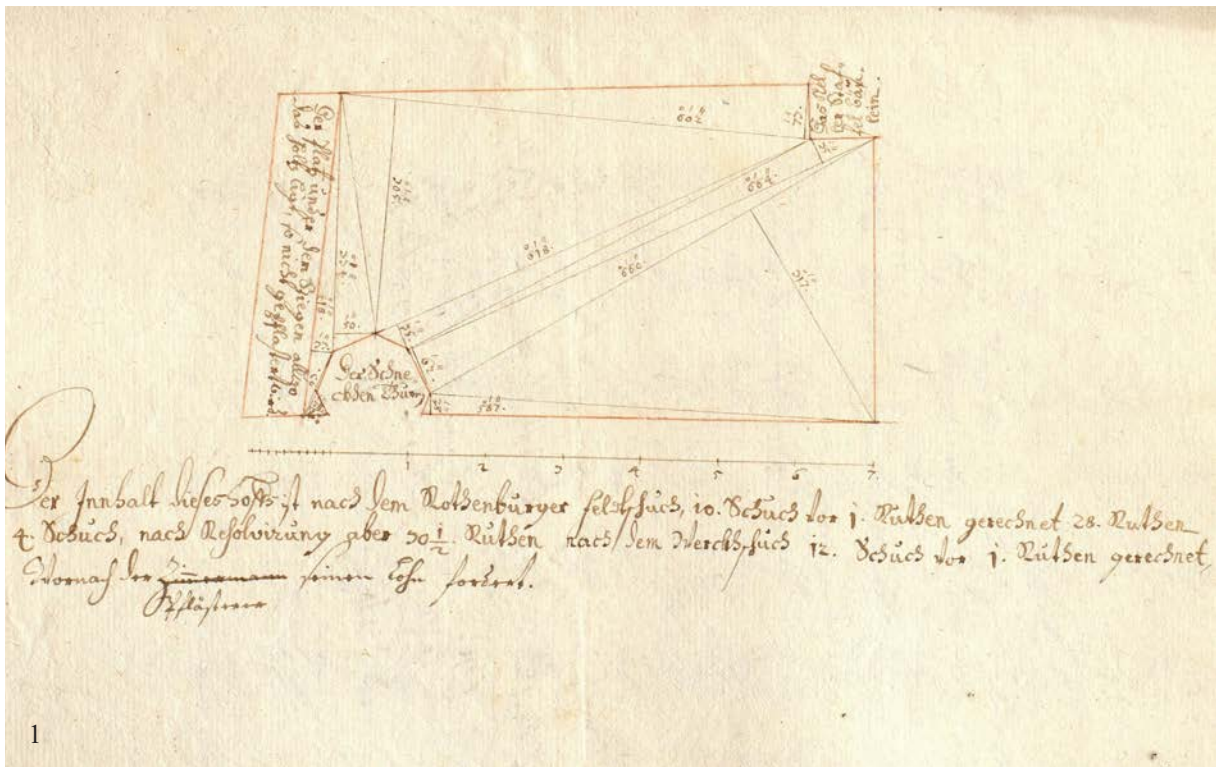 Das Ach
fel häus
lein.
Der Platz under dem Stiegen allwo
das Holtz ligt, so nicht gepflastert wird.
602.
664.
678.
660.
517.
567.
50.
Der Schne
ckhen Thurn
1 2 3 4 5 6 7.
Der Innhalt dieses Hoffs ist nach dem Rothenburger feldschuch, 10. Schuch vor 1. Ruthen gerechnet 28. Ruthen
4. Schuch, nach Resolvirung aber 30 1/2. Ruthen nach dem Werckhschuch 12. Schuch vor 1. Ruthen gerechnet,
Wornach der Zimmermann seinen Lohn fordert.
Pflästerer
1